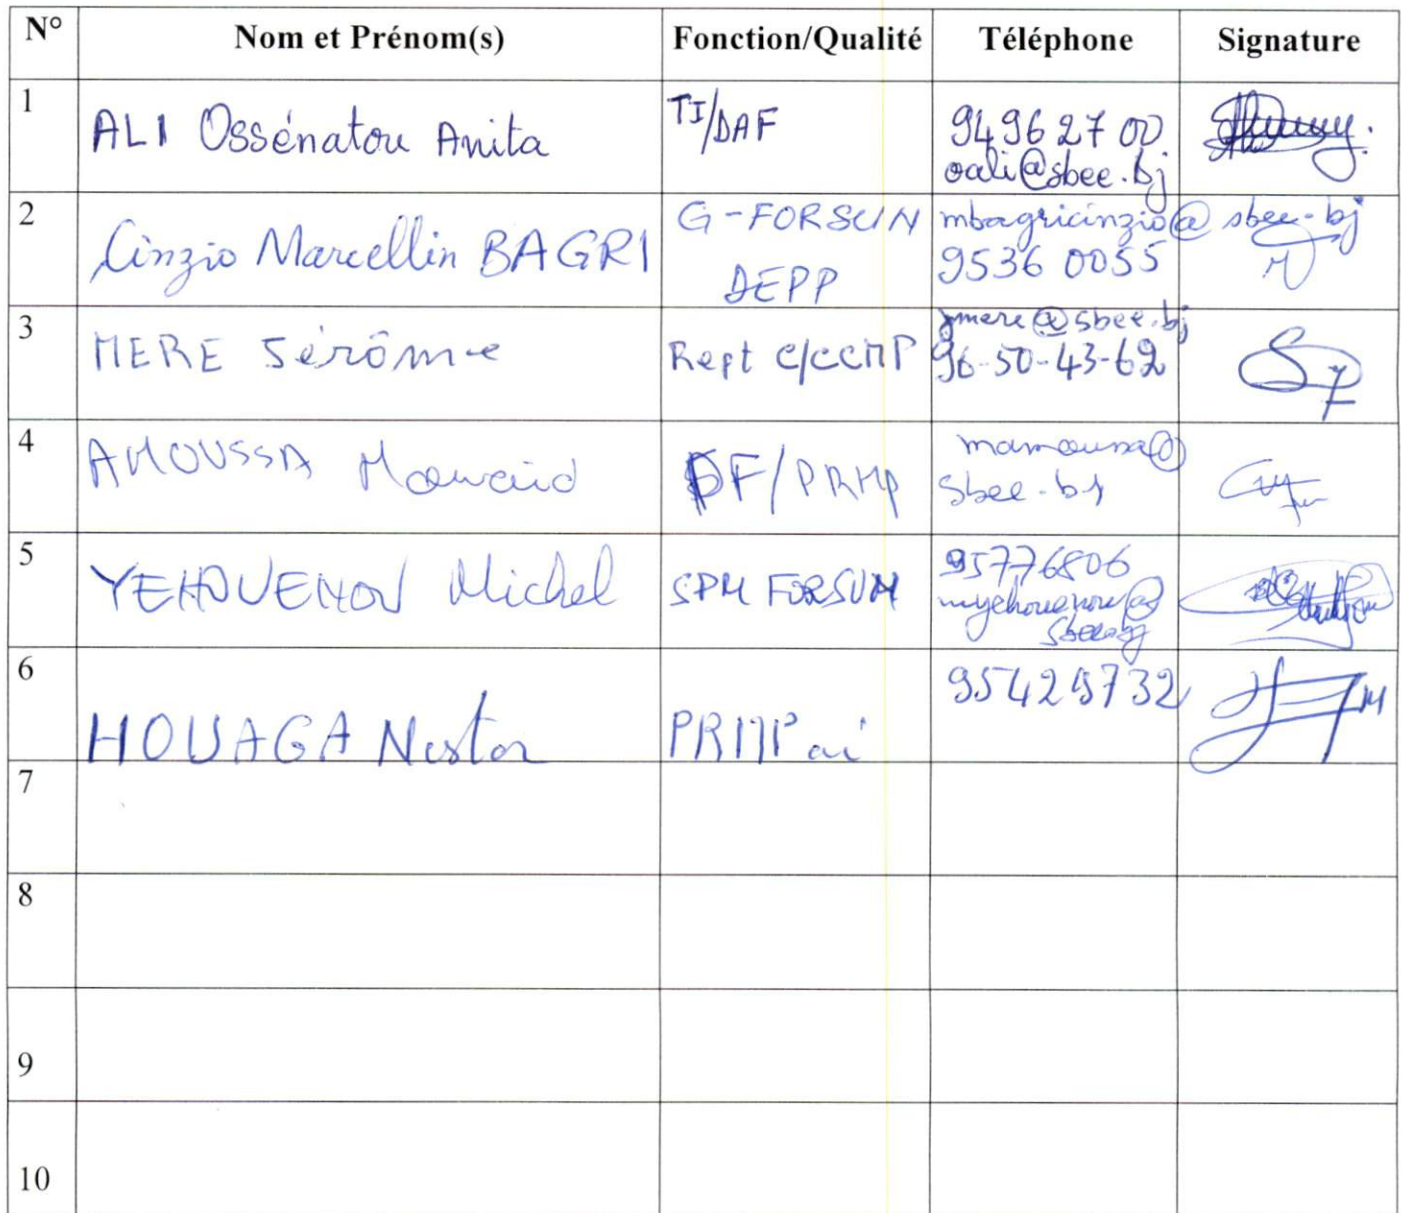 N° Nom et Prénom(s) Fonction/Qualité Téléphone Signature
1 ALI Ossénatou Anita TI/DAF 94 96 27 00
oali@sbee.bj
2 Cinzio Marcellin BAGRI G-FORSUN mbagricinzio@sbee.bj
DEPP 9536 0055
3 MERE Jérôme Rept C/CCMP jmere@sbee.bj
96-50-43-62
4 AMOUSSA DF/PRMP mamoussa@
sbee.bj
5 YEHOUENOU Michel SPM FORSUN 95776806
myehouenou@
sbee.bj
6 HOUAGA Nestor PRMP ai 95429732
7
8
9
10